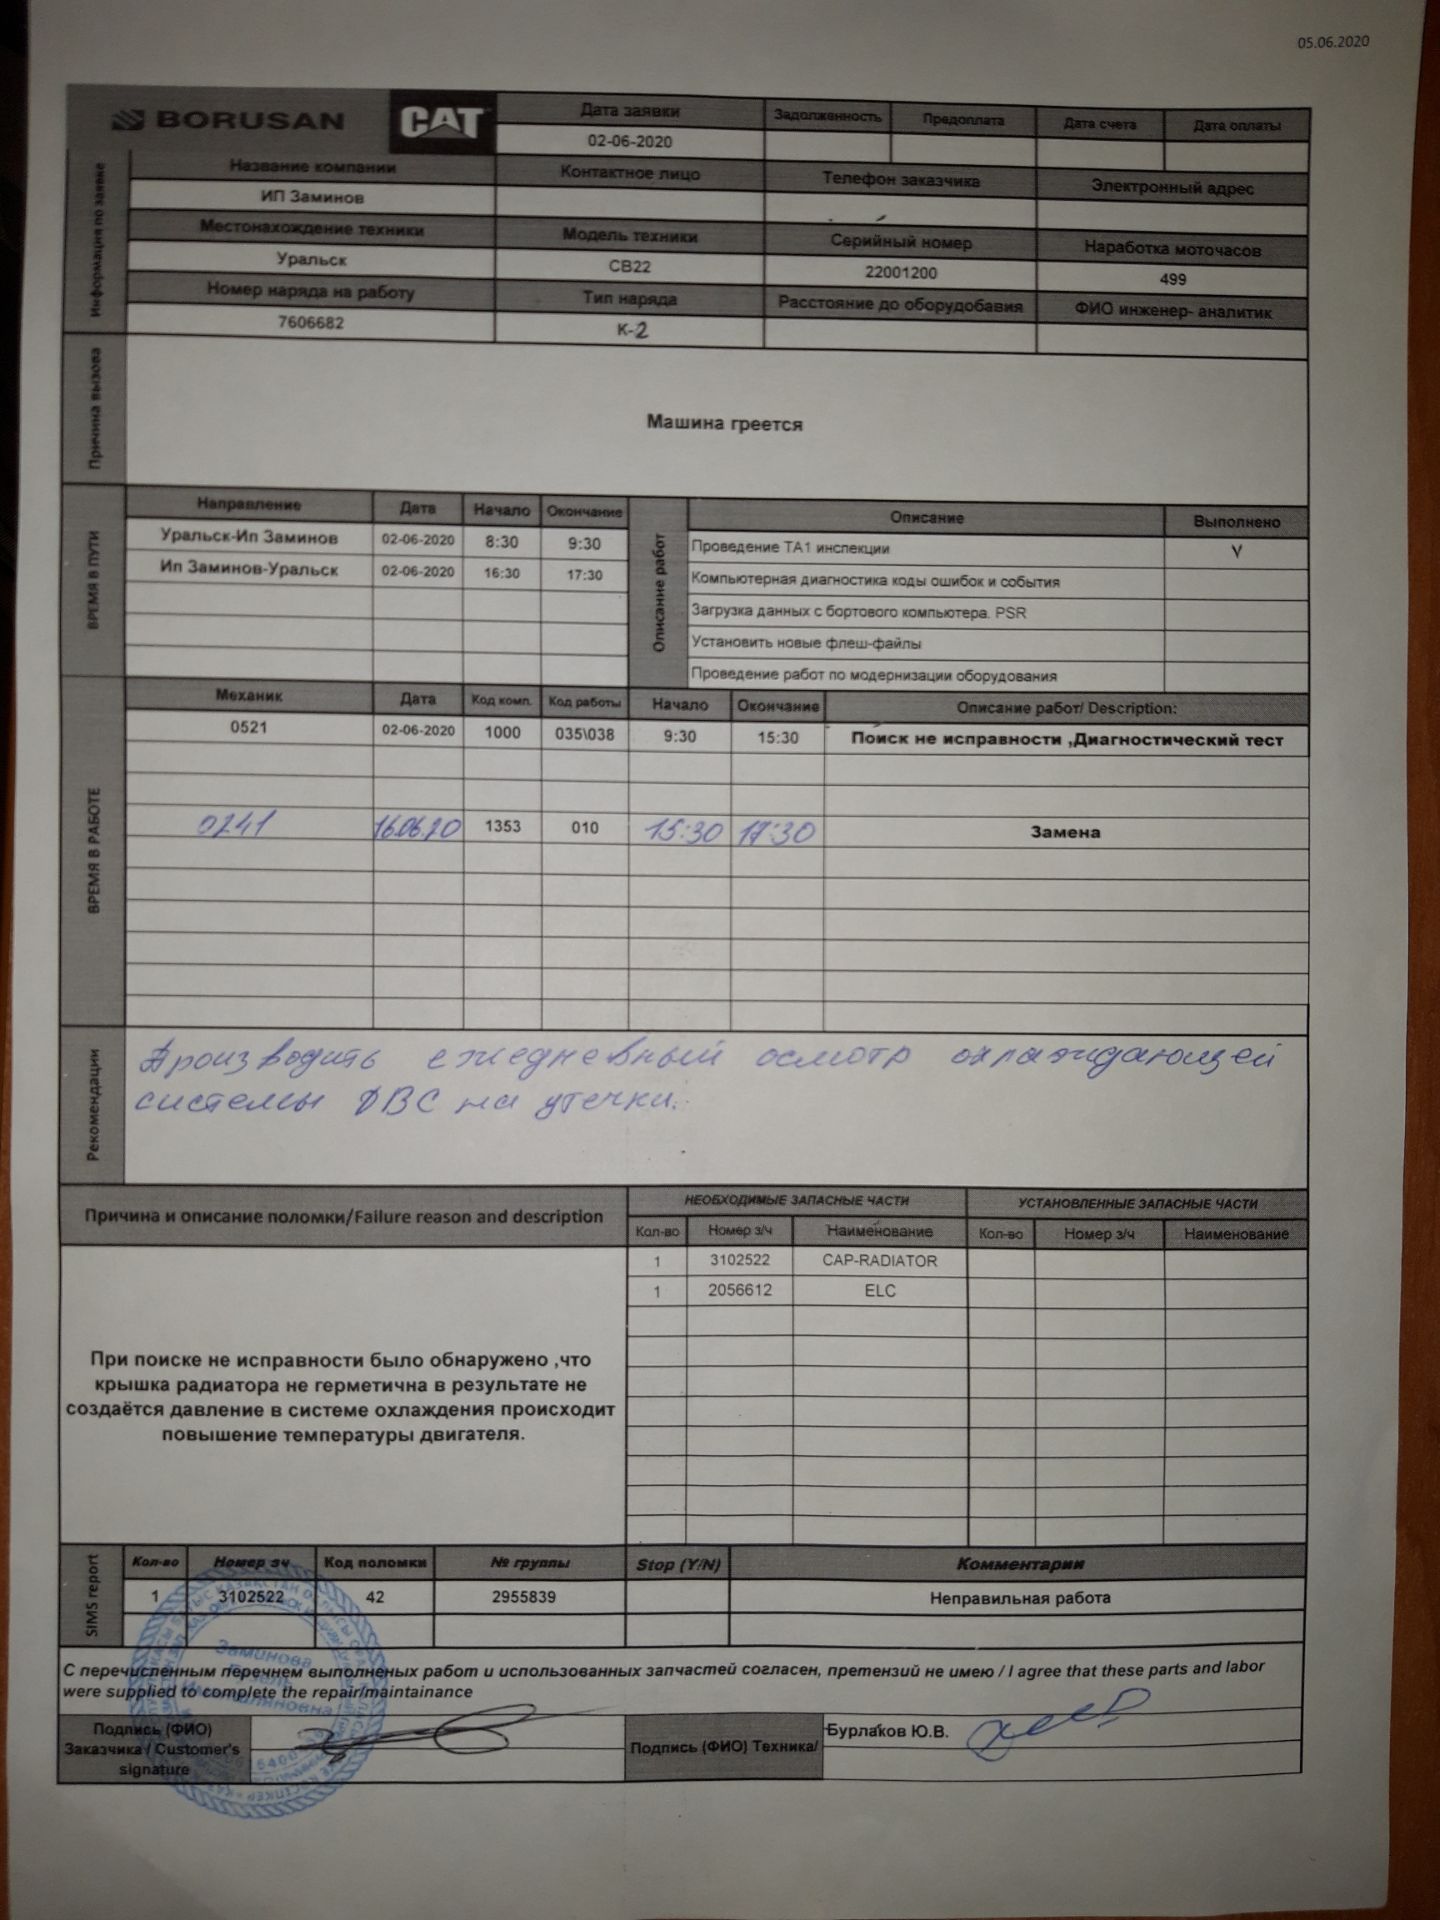 05.06.2020
BORUSAN CAT Дата заявки Задолженность Предоплата Дата счета Дата оплаты
02-06-2020
Информация по заявке
Название компании Контактное лицо Телефон заказчика Электронный адрес
ИП Заминов
Местонахождение техники Модель техники Серийный номер Наработка моточасов
Уральск CB22 22001200 499
Номер наряда на работу Тип наряда Расстояние до оборудобавия ФИО инженер- аналитик
7606682 К-2
Причина вызова
Машина греется
ВРЕМЯ В ПУТИ
Направление Дата Начало Окончание
Уральск-Ип Заминов 02-06-2020 8:30 9:30
Ип Заминов-Уральск 02-06-2020 16:30 17:30
Описание работ
Описание Выполнено
Проведение ТА1 инспекции V
Компьютерная диагностика коды ошибок и события
Загрузка данных с бортового компьютера. PSR
Установить новые флеш-файлы
Проведение работ по модернизации оборудования
ВРЕМЯ В РАБОТЕ
Механик Дата Код комп. Код работы Начало Окончание Описание работ/ Description:
0521 02-06-2020 1000 035\038 9:30 15:30 Поиск не исправности ,Диагностический тест
0241 16.06.20 1353 010 15:30 17:30 Замена
Рекомендации
Производить ежедневный осмотр охлаждающей
системы ДВС на утечки.
Причина и описание поломки/Failure reason and description
НЕОБХОДИМЫЕ ЗАПАСНЫЕ ЧАСТИ УСТАНОВЛЕННЫЕ ЗАПАСНЫЕ ЧАСТИ
Кол-во Номер з/ч Наименование Кол-во Номер з/ч Наименование
1 3102522 CAP-RADIATOR
1 2056612 ELC
При поиске не исправности было обнаружено ,что
крышка радиатора не герметична в результате не
создаётся давление в системе охлаждения происходит
повышение температуры двигателя.
SIMS report
Кол-во Номер зч Код поломки № группы Stop (Y/N) Комментарии
1 3102522 42 2955839 Неправильная работа
Заминова
С перечисленным перечнем выполненых работ и использованных запчастей согласен, претензий не имею / I agree that these parts and labor
were supplied to complete the repair/maintainance
Подпись (ФИО)
Заказчика / Customer's
signature
Подпись (ФИО) Техника/
Бурлаков Ю.В.